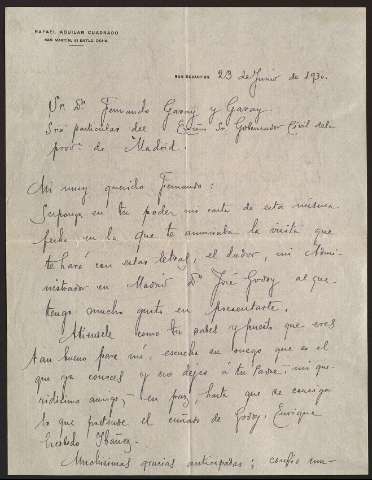 RAFAEL AGUILAR CUADRADO
SAN MARTIN,
SAN SEBASTIAN 23 de Junio de 1930.
Sr. Dn. Fernando Garay y Garay.
Srio particular del Excmo Sr. Gobernador Civil de la
prov.ª de Madrid.
Mi muy querido Fernando:
Supongo en tu poder mi carta de esta misma
fecha en la que te anunciaba la visita que
te hará con estas letras, el dador, mi Admi-
nistrador en Madrid Dn José Godoy al que
tengo mucho gusto en presentarte.
Atiendele como tu sabes y puesto que eres
tan bueno para mi, escucha su ruego que es el
que ya conoces y no dejes a tu Padre, mi que-
ridisimo amigo, en paz, hasta que se consiga
lo que pretende el cuñado de Godoy, Enrique
Ibáñez.
Muchisimas gracias anticipadas; confio